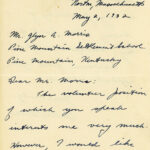 Boston, Massachusetts
May 2, 1932
Mr. Glyn A. Morris
Pine Mountain Settlement School
Pine Mountain, Kentucky
Dear Mr. Morris:
The volunteer position
of which you speak
interests me very much.
However, I would like